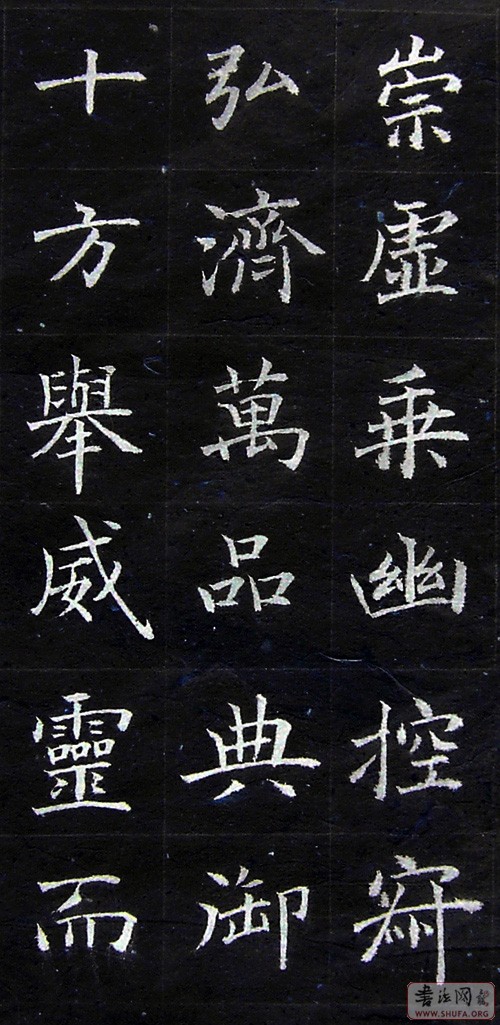 崇虛乗幽控寂
弘濟萬品典御
十方舉威靈而
書法网
WWW.SHUFA.ORG